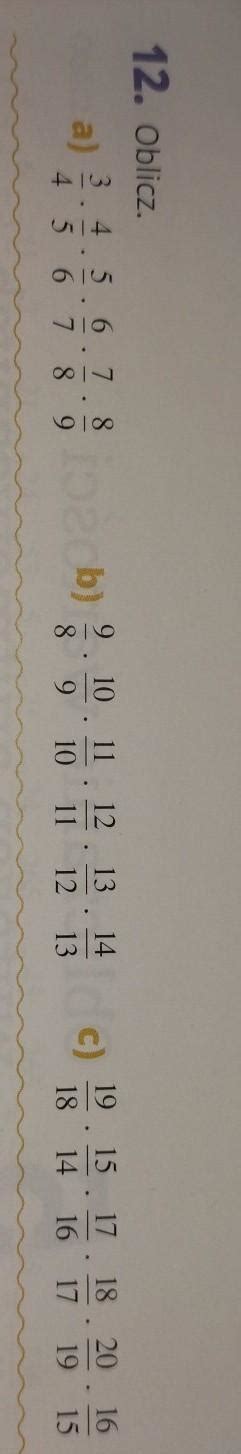 12. Oblicz.
a) 3/4 · 4/5 · 5/6 · 6/7 · 7/8 · 8/9 b) 9/8 · 10/9 · 11/10 · 12/11 · 13/12 · 14/13 c) 19/18 · 15/14 · 17/16 · 18/17 · 20/19 · 16/15